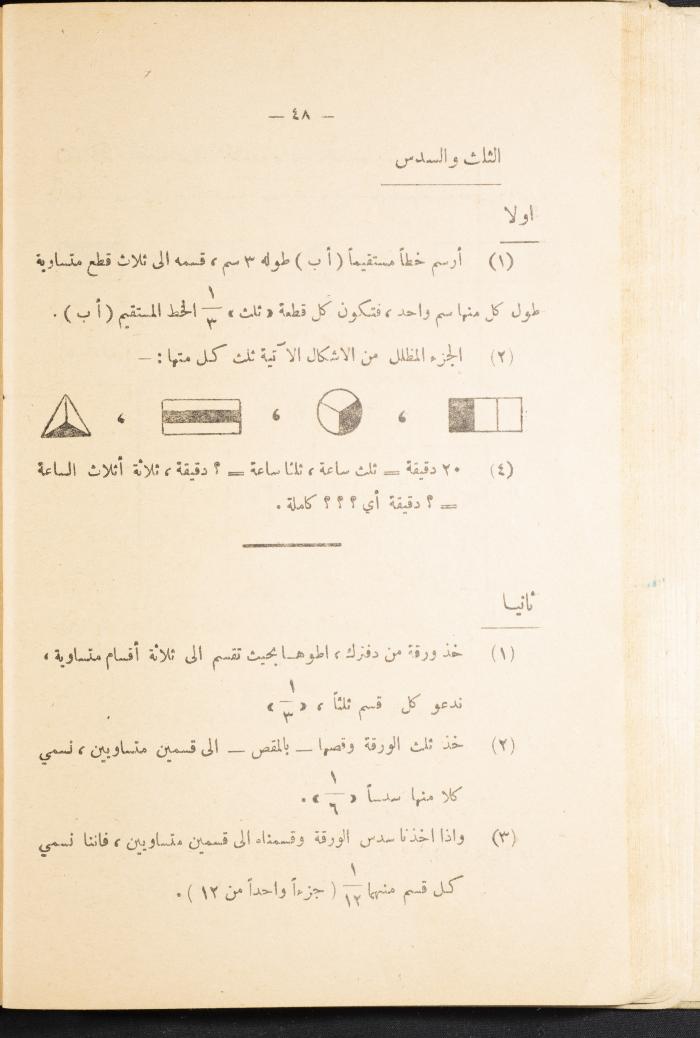 — ٤٨ —
الثلث والسدس
اولا
(١) أرسم خطاً مستقيماً (أ ب) طوله ٣ سم ، قسمه الى ثلاث قطع متساوية
طول كل منها سم واحد ، فتكون كل قطعة « ثلث » ١/٣ الخط المستقيم (أ ب) .
(٢) الجزء المظلل من الاشكال الآتية ثلث كل متها : —
، ، ،
(٤) ٢٠ دقيقة = ثلث ساعة ، ثلثا ساعة = ؟ دقيقة ، ثلاثة أثلاث الساعة
= ؟ دقيقة أي ؟ ؟ ؟ كاملة .
ثانيا
(١) خذ ورقة من دفترك ، اطوهـا بحيث تقسم الى ثلاثة أقسام متساوية ،
ندعو كل قسم ثلثاً ، « ١/٣ »
(٢) خذ ثلث الورقة وقصها — بالمقص — الى قسمين متساويين ، نسمي
كلا منها سدساً « ١/٦ » .
(٣) واذا اخذنا سدس الورقة وقسمناه الى قسمين متساويين ، فاننا نسمي
كل قسم منهما ١/١٢ ( جزءاً واحداً من ١٢ ) .